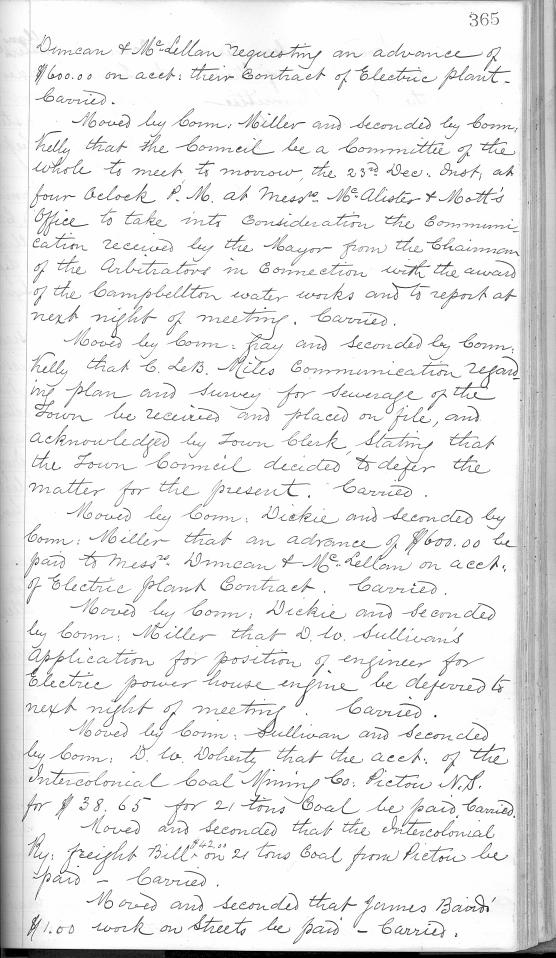 365
Duncan & McLellan requesting an advance of
$600.00 on acct: their Contract of Electric plant-
Carried.
Moved by Conn: Miller and seconded by Conn:
Kelly that the Council be a Committee of the
whole to meet to morrow, the 23rd Dec: Inst, at
four Oclock P. M. at Messrs McAlister & Mott's
Office to take into Consideration the Communi-
cation received by the Mayor from the Chairman
of the Arbitrators in Connection with the award
of the Campbellton water works and to report at
next night of meeting. Carried.
Moved by Conn: Gray and seconded by Conn:
Kelly that C. LeB. Miles Communication regard-
ing plan and survey for sewerage of the
Town be received and placed on file, and
acknowledged by Town Clerk, stating that
the Town Council decided to defer the
matter for the present. Carried.
Moved by Conn: Dickie and seconded by
Conn: Miller that an advance of $600.00 be
paid to Messrs Duncan & McLellan on acct:
of Electric plant Contract. Carried.
Moved by Conn: Dickie and Seconded
by Conn: Miller that D. W. Sullivan's
Application for position of engineer for
Electric power house engine be deferred to
next night of meeting Carried.
Moved by Conn: Sullivan and seconded
by Conn: D. W. Doherty that the acct: of the
Intercolonial Coal Mining Co: Pictou N.S.
for $38.65 for 21 tons Coal be paid. Carried.
Moved and seconded that the Intercolonial
Ry: freight Bill $42.00 on 21 tons Coal from Pictou be
paid - Carried.
Moved and seconded that James
$1.00 work on Streets be paid - Carried.